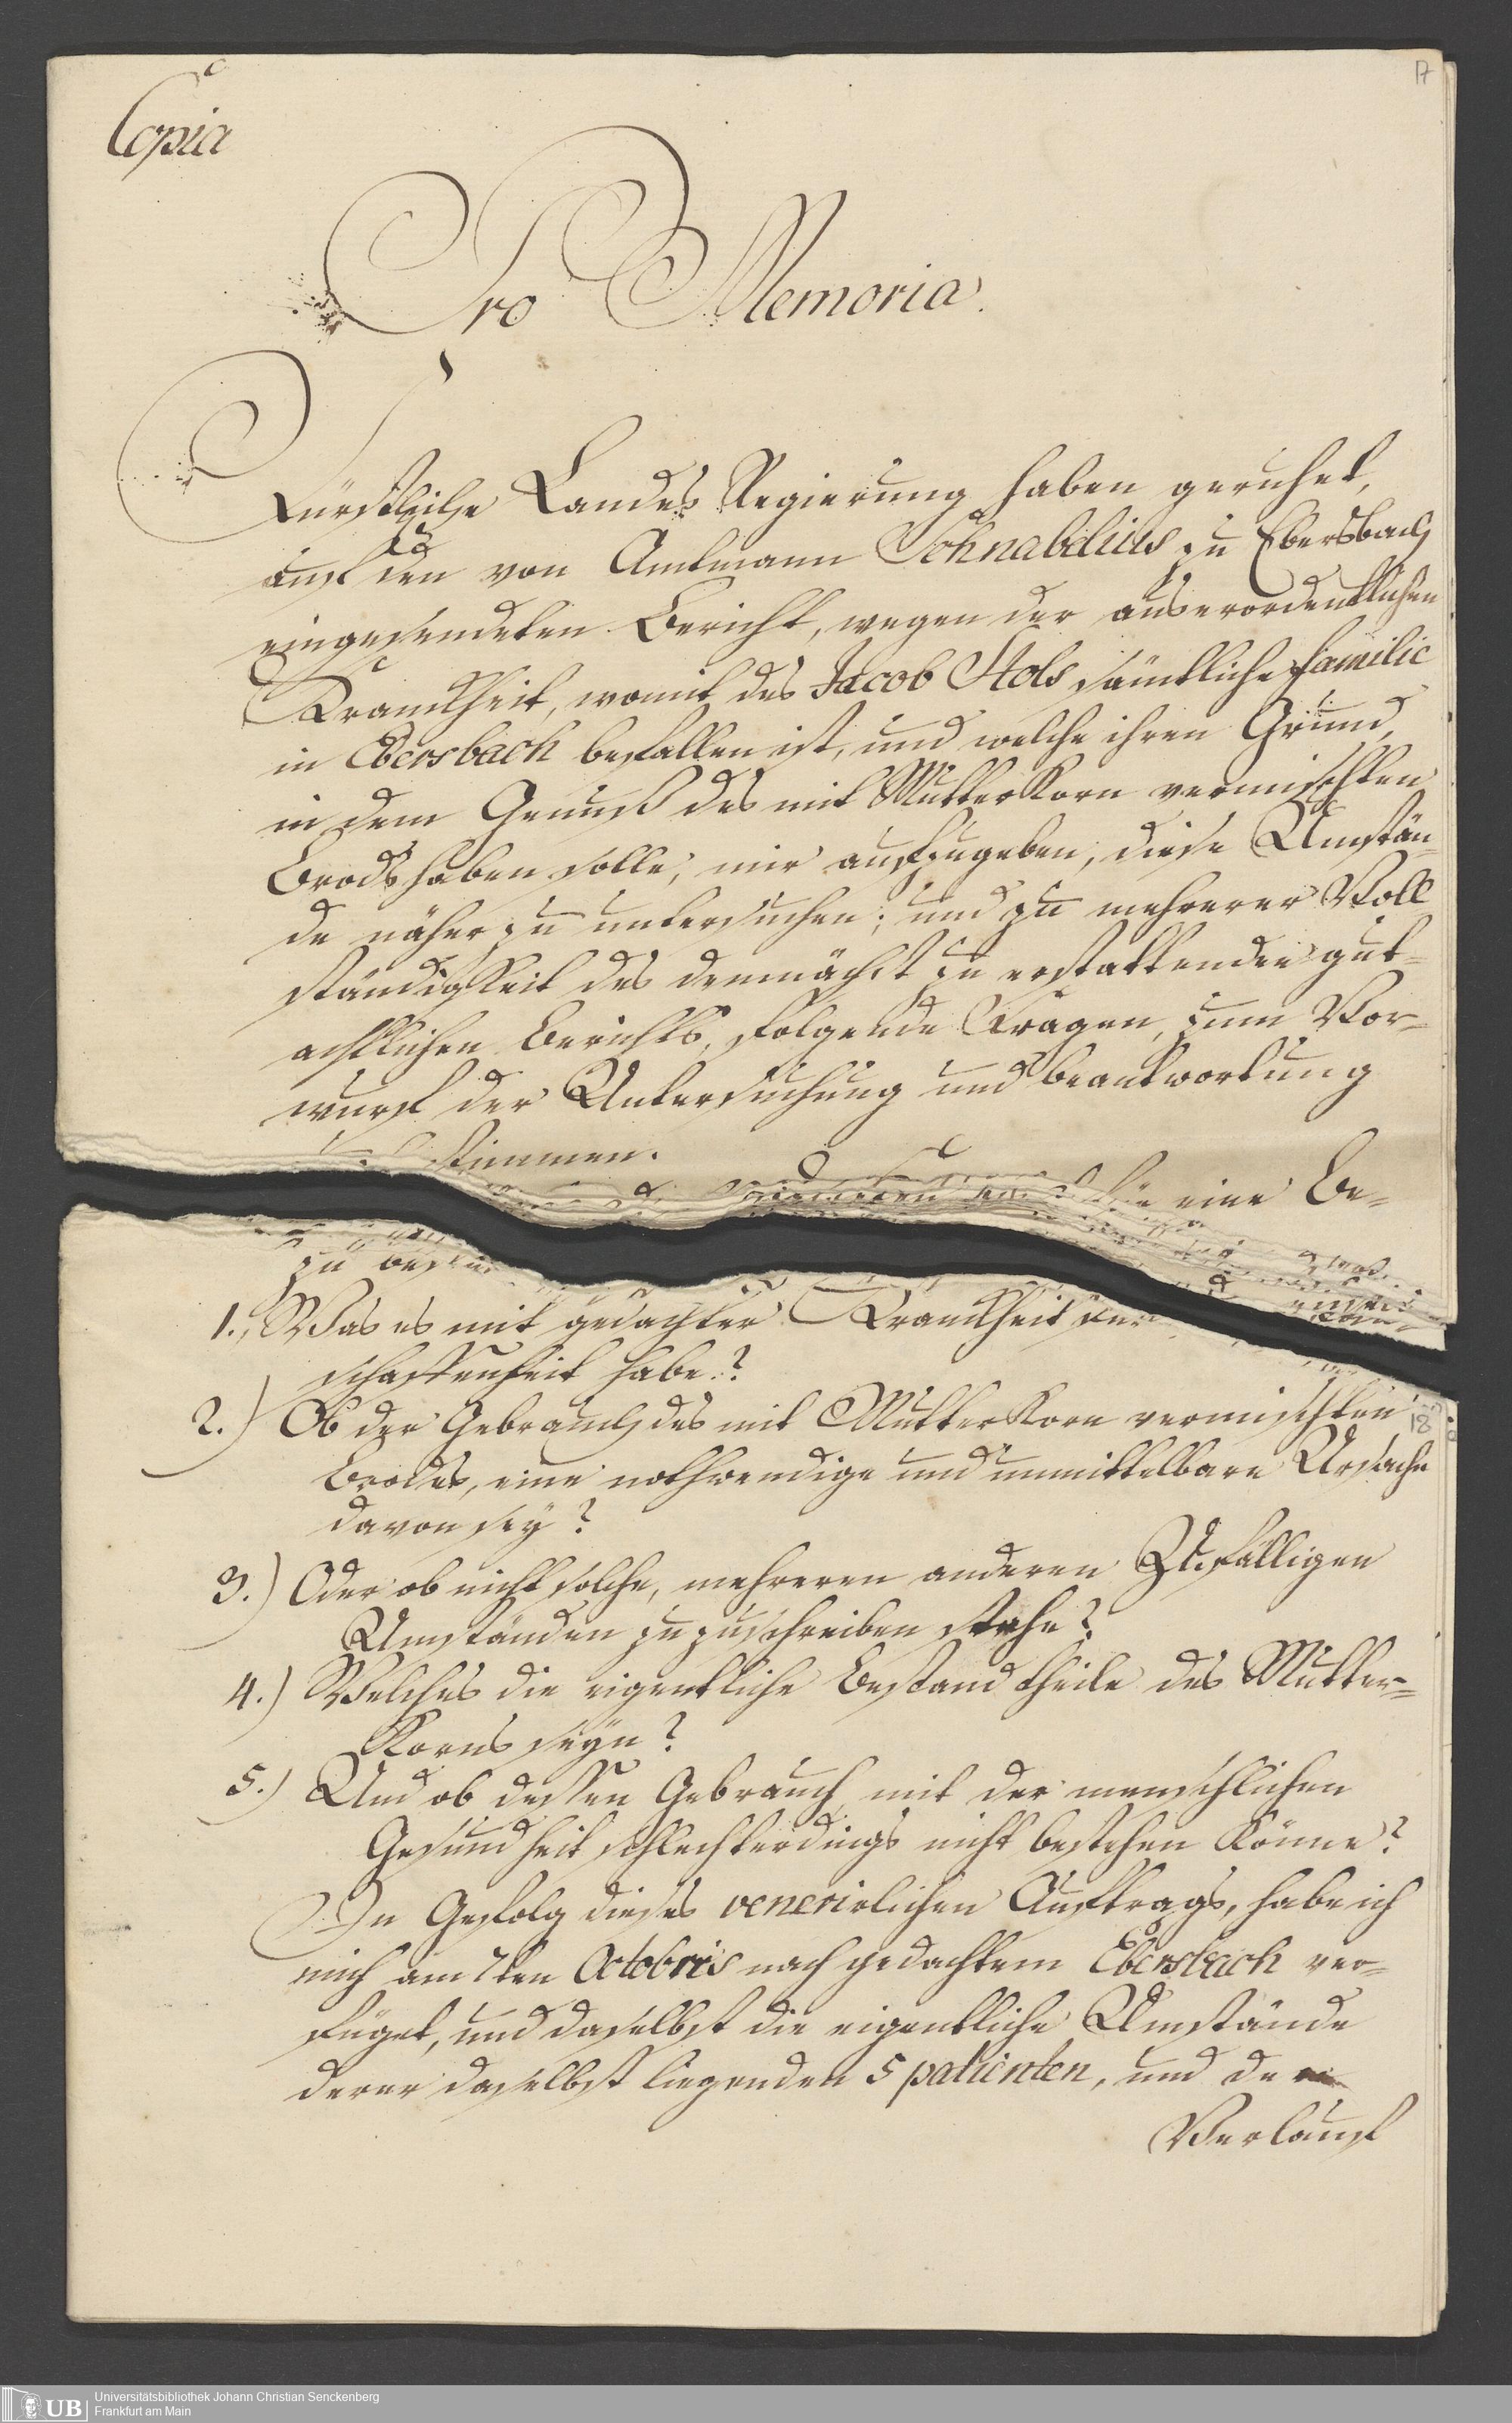 17
Copia
Pro Memoria.
Fürstliche Landes Regierung haben geruhet,
auf den von Amtmann Schnabelius zu Ebersbach
eingesendeten Bericht, wegen der auserordentlichen
Kranckheit, womit des Jacob Stols sämtliche familie
in Ebersbach befallen ist, und welche ihren Grund,
in dem Genuß des mit Mutterkorn vermischten
Brods haben solle, mir aufzugeben, diese Umstän
de näher zu untersuchen; und zu mehrerer Voll
ständigkeit des demnächst zu erstattenden gut-
achtlichen Berichts, folgende Fragen, zum Vor-
wurf der Untersuchung und beantwortung
stimmen.
eine Be-
zu
1., Was es mit gedachter Kranckheit
schaffenheit habe?
2.) Ob der Gebrauch des mit Mutterkorn vermischten
18
Brodes, eine nothwendige und unmittelbare Ursache
davon sey?
3.) Oder ob nicht solche, mehreren anderen Zufälligen
Umständen zuzuschreiben stehe?
4.) Welches die eigentliche Bestandtheile des Mutter-
Korns seyn?
5.) Und ob dessen Gebrauch mit der menschlichen
Gesundheit schlechterdings nicht bestehen könne?
In Gefolg dieses venerirlichen Auftrags, habe ich
mich am 7ten Octobris nach gedachtem Ebersbach ver-
füget, und daselbst die eigentliche Umstände
derer daselbst liegenden 5 patienten, und den
Verlauf
UB
Universitätsbibliothek Johann Christian Senckenberg
Frankfurt am Main